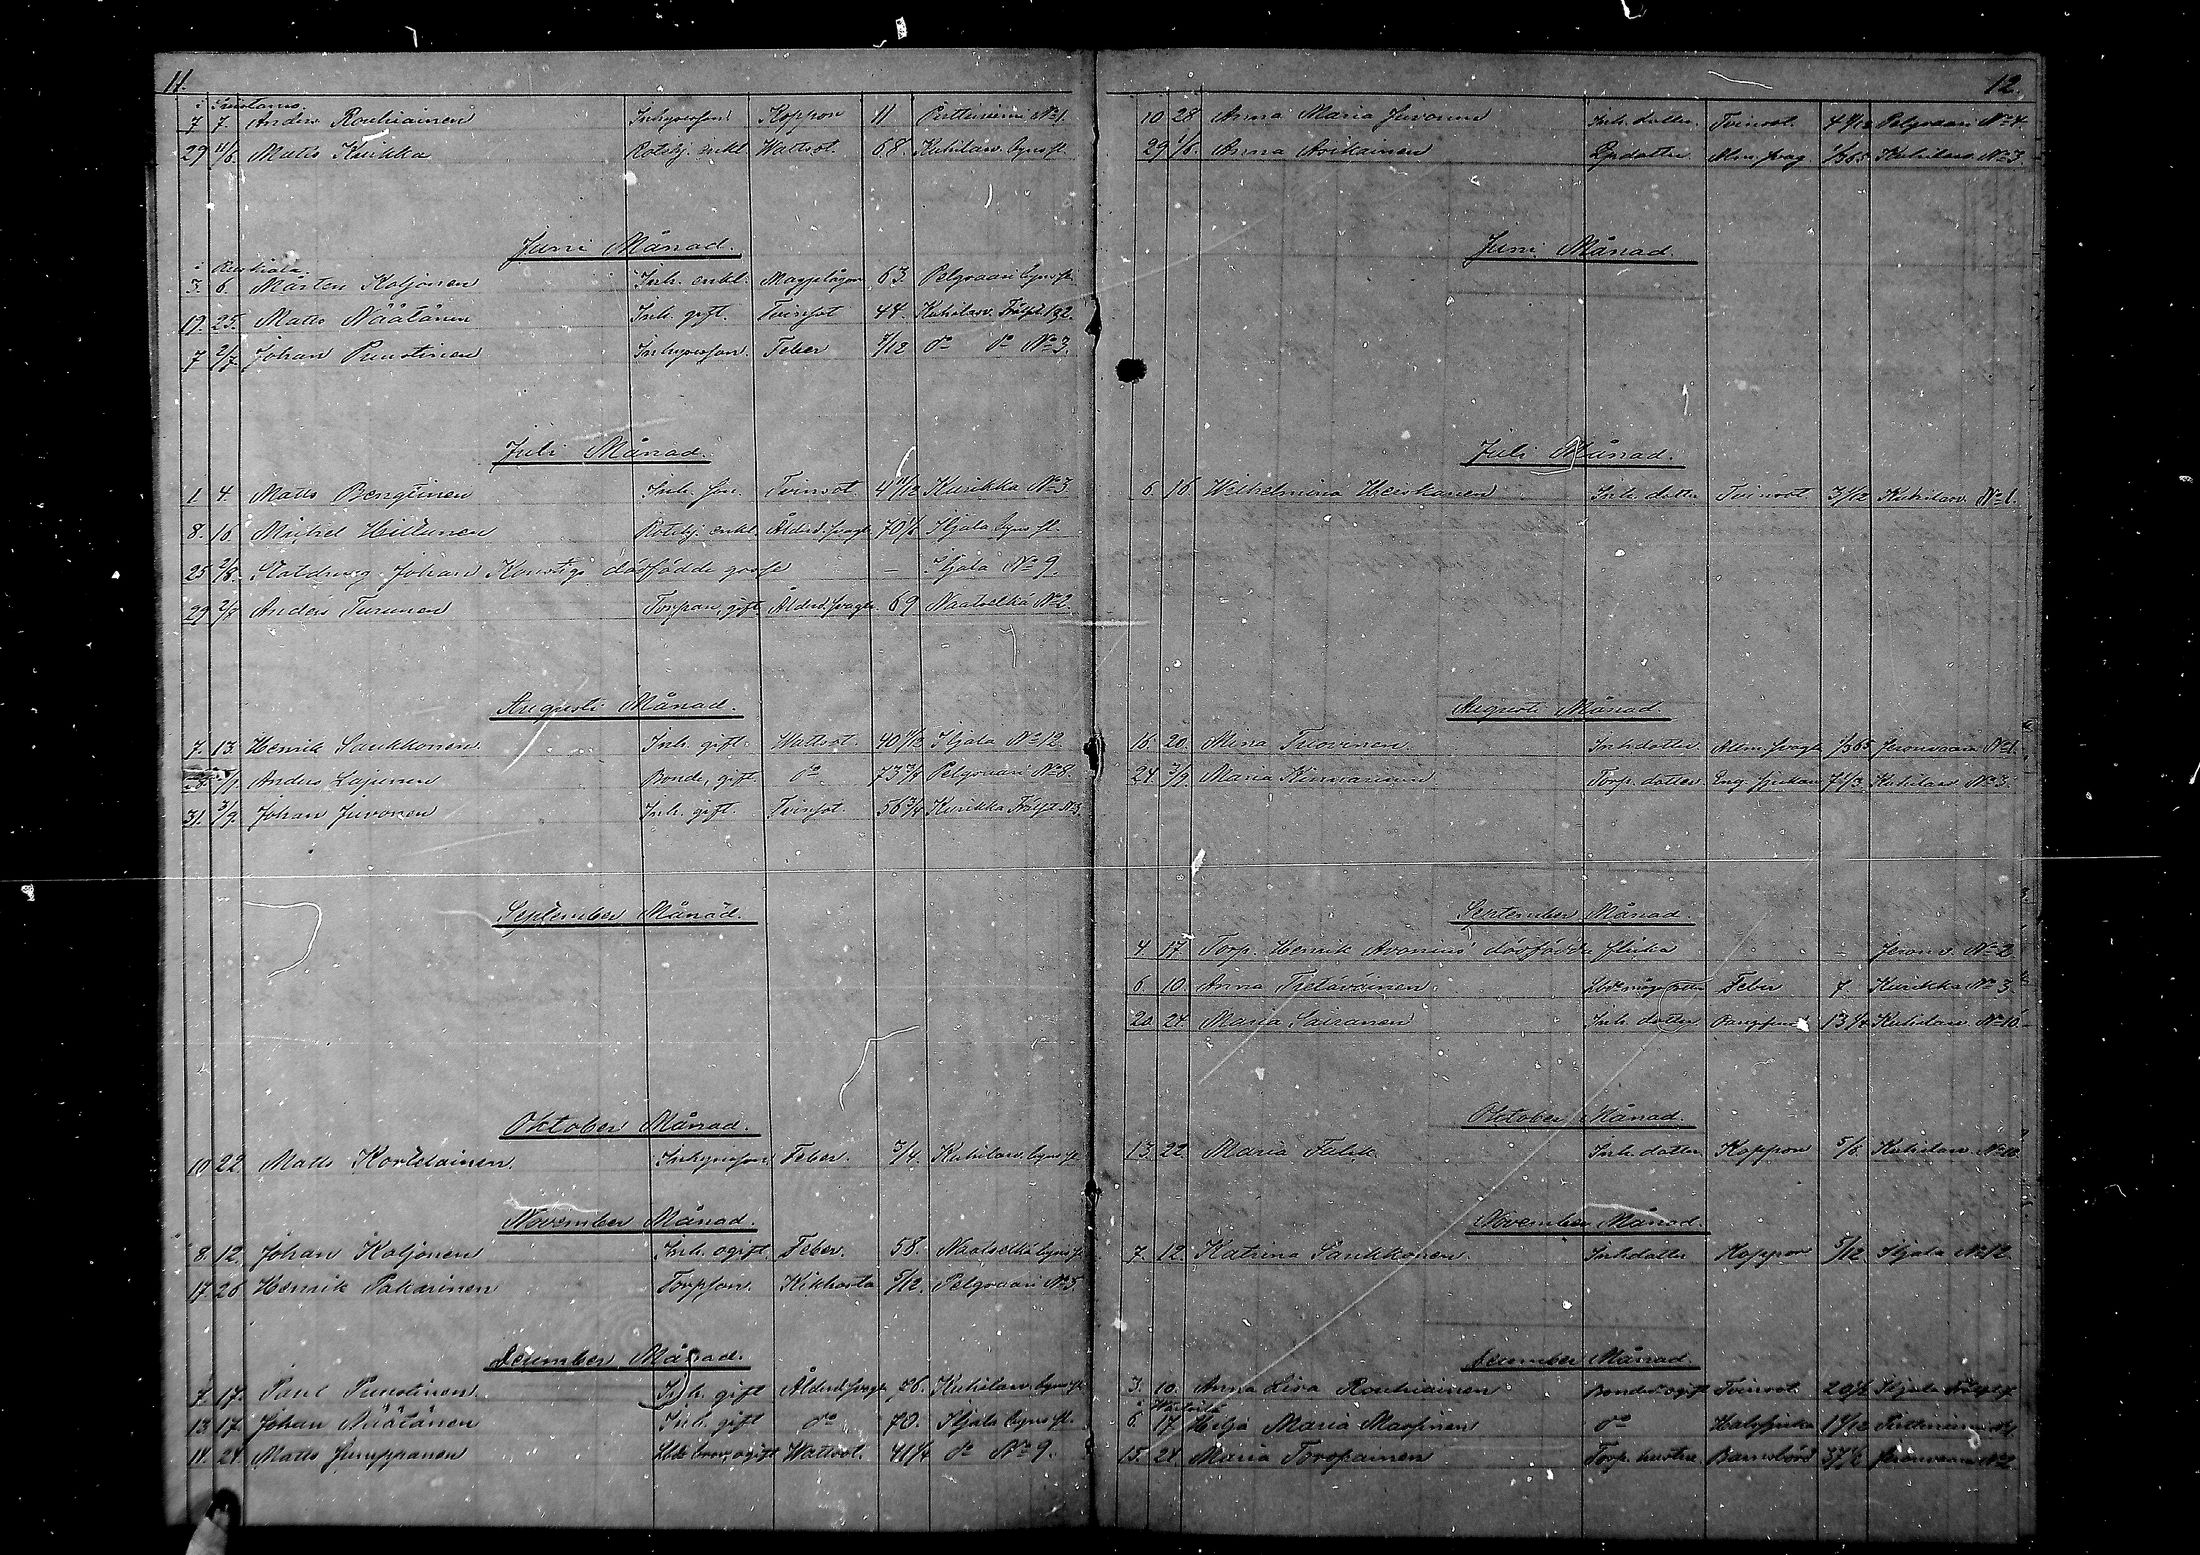 11.
7 7. Anders Rouhiainen Inhysesson Koppor 11 No 1.
29 11/6. Matts Kuikka Rotehj. enkl. Wattsot. 68. Kuhilaw. Bynsfl.
Juni Månad.
i Ruskiala.
3. 6. Mårten Koljonen Inh. enkl. Magplågor 63. Pelgvaari Bynsfl.
19. 25. Matts Näätänen Inh. gift. Tvinsot 44. Kuhilaw. 192.
7 2/7. Johan Puustinen Inhysesson. Feber 7/12 do do No 3.
Juli Månad.
1. 4 Matts Bengtinen Inh. son. Tvinsot. 4 11/12 Kuikka No 3
8. 16 Mikael Hiltunen Rotehj. enkl. Ålderd. svaght 70 Ihjala Bynsfl.
25 2/8. Statdreng Johan dödfödde gosse — Ihjala No 9.
29 2/8 Anders Turunen Torpare, gift Ålderd. svaght. 69 Naatselkä No 2.
Augusti Månad.
7. 13. Henrik Saukkonen Inh. gift. Wattsot. 40 Ihjala No 12
Anders Lajunen Bonde, gift do 73 3/4 Pelgvaari No 8.
31. 3/9. Johan Juvonen Inh. gift. Tvinsot. 56 3/4 Kuikka No 3.
September Månad.
Oktober Månad.
10 22 Matts Kortelainen. Inhysesson Feber. 3/4. Kuhilaw. Bynsfl.
November Månad.
8. 12. Johan Koljonen Inh. ogift. Feber. 58. Naatselkä Bynsfl.
17. 26 Henrik Pakarinen Torpson. Kikhosta 5/12. Pelgvaari No 5.
December Månad.
7. 17. Paul Puustinen. Inh. gift Ålderd. svaght 76. Kuhilaw. Bynsfl.
13 17. Johan Näätänen Inh. gift do 70. Ihjala Bynsfl.
14. 24. Matts Jumppanen ogift Wattsot. 41 1/4 do No 9.
12.
10 28 Anna Maria Juvonen Inh. dotter. Tvinsot. 4 Pelgvaari No 4.
29 1/6. Anna Asikainen dotter Alm. svag. 1/365 Kuhilaw. No 3.
Juni Månad.
Juli Månad.
6. 16. Wilhelmina Heiskanen Inh. dotter Tvinsot. 3/12 Kuhilaw. No 1.
Augusti Månad.
16. 20. Mina Tuovinen Inh. dotter. Alm. svaght Jeronvaara No 1.
24 3/9. Maria Kinnunen Torp. dotter Kuhilaw. No 3.
September Månad.
4 17. Torp. Henrik dödfödda flicka — Jeronv. No 2
6. 10. Anna Tietäväinen. Feber 7 Kuikka No 3.
20 24 Maria Sairanen Inh. dotter 13 1/4 Kuhilaw. No 10.
Oktober Månad.
13. 22 Maria Inh. dotter Koppor 5/6. Kuhilaw. No 10
November Månad.
7. 12. Katrina Saukkonen. Inh. dotter Koppor 5/12. Ihjala No 12
December Månad.
3. 10. Anna Lisa Rouhiainen ogift Tvinsot. Ihjala
6. 17 Hilja Maria do Halssjuka
15. 24 Maria Toropainen Torp. hustru. Barnsbörd 37 1/6 Jeronvaara No 2.